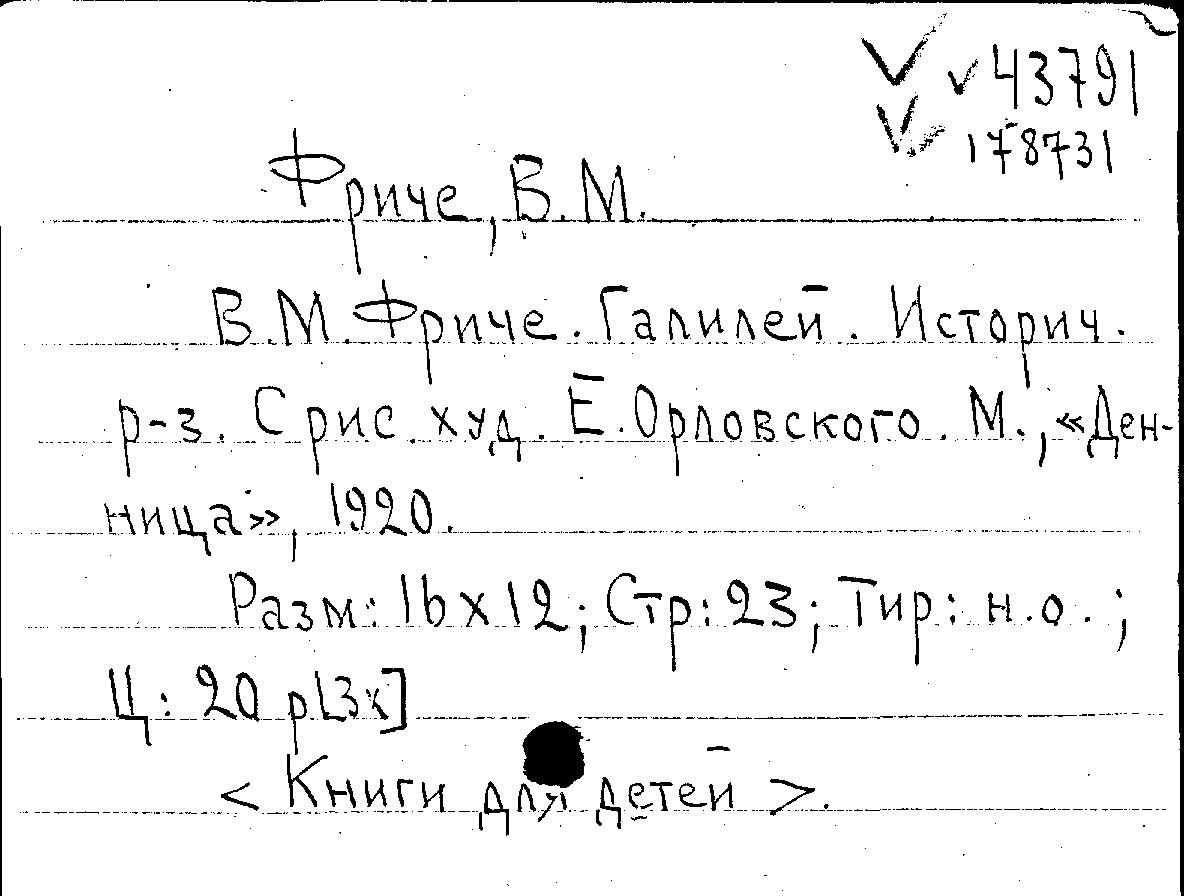 43791
178731
Фриче, В.М.
В.М. Фриче. Галилей. Историч.
р-з. С рис. худ. Е. Орловского. М., «Ден-
ница», 1920.
Разм: 16 х 12; Стр: 23; Тир: н.о.;
Ц: 20 р[3к]
< Книги для детей >.